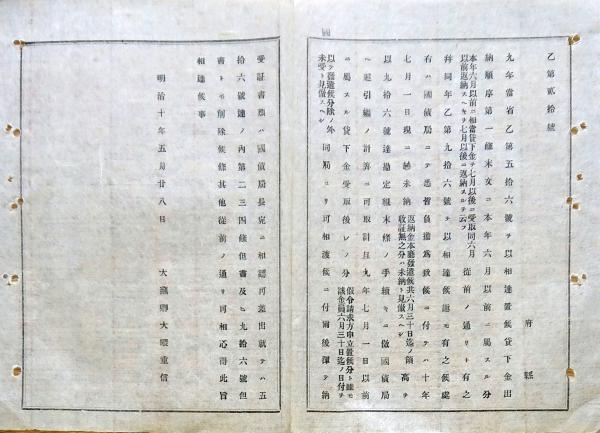 乙第貳拾號
府縣
九年當省乙第五拾六號ヲ以相達置候貸下金出
納順序第一條末文ニ本年六月以前ニ屬スル分
本年六月以前ニ相當貸下金ヲ七月以後ニ受取同六月
以前返納スヘキヲ七月以後ニ返納スルヲ云フ
從前ノ通リト有之
并同年乙第九拾六號ヲ以相達候趣モ有之候處
右ハ國債局ニテ悉皆負擔為致候ニ付テハ十年
七月一日現ニ
未納
返納金本廳發遣候共六月三十日迄ノ領
收証無之分ハ未納ト見做スヘシ
高ヲ
以九拾六號達勘定組末條ノ手續キニ倣國債局
ヘ引繼ノ計算ニ可取計且九年七月一日以前
ニ屬スル貸下金受取後レノ分
假令請求方申立置候分ト雖モ
該金員六月三十日迄ノ日付ヲ
以テ發遣候分除ノ外
未受ト見做スヘシ
同局ヨリ可相渡候ニ付爾後渾テ納
受証書類ハ國債局長宛ニ相認可差出就テハ五
拾六號達ノ內第二三四條但書及ヒ九拾六號但
書トモ削除候條其他從前ノ通リ可相心得此旨
相達候事
明治十年五月廿八日
大藏卿大隈重信
國